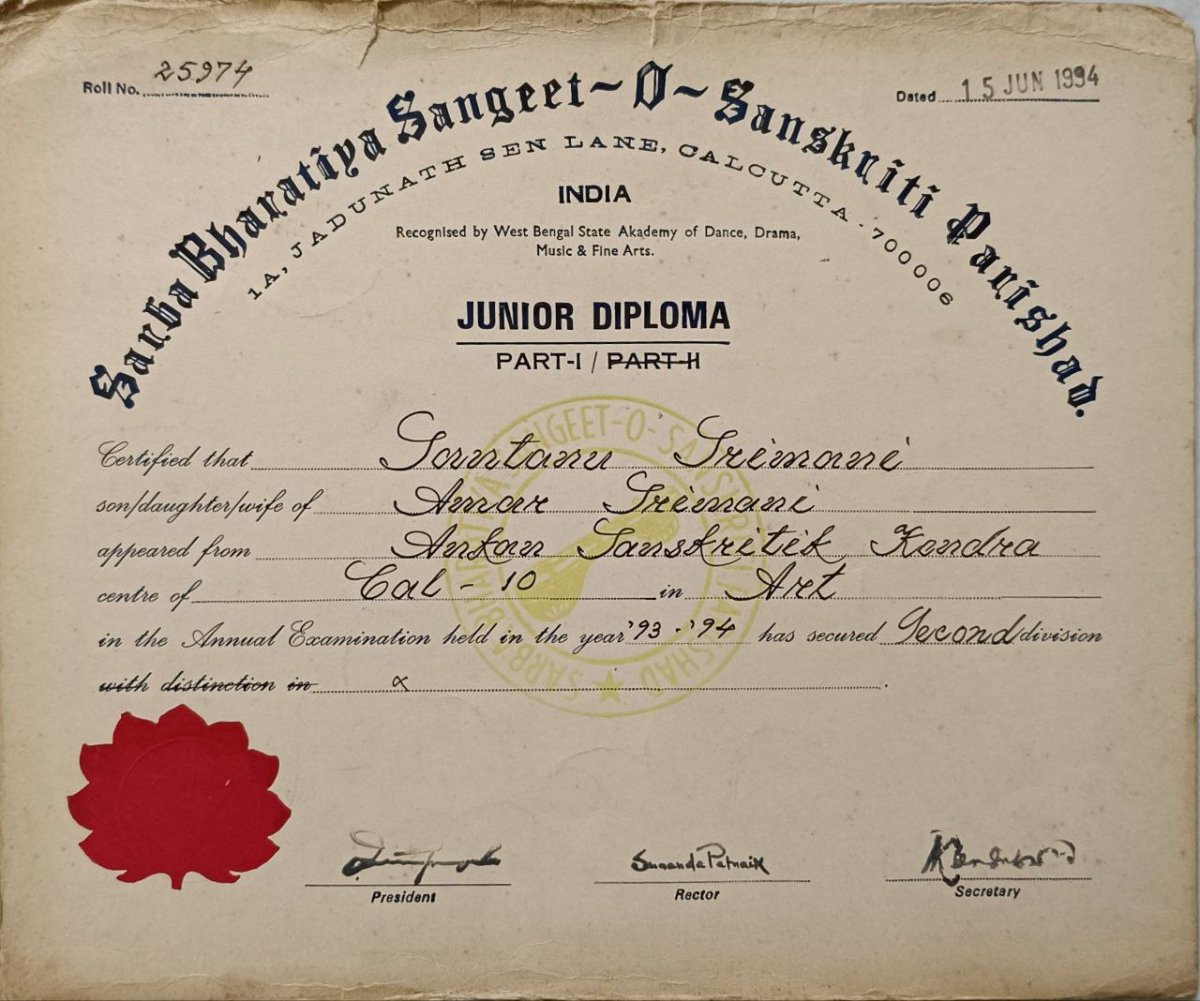 Roll No. 25974
Dated 15 JUN 1994
Sarba Bharatiya Sangeet~O~Sanskriti Parishad.
1A, JADUNATH SEN LANE, CALCUTTA-700006
INDIA
Recognised by West Bengal State Akademy of Dance, Drama,
Music & Fine Arts.
JUNIOR DIPLOMA
PART-I / PART-II
Certified that Somtanu Srimani
son/daughter/wife of Amar Srimani
appeared from Ankan Sanskritik Kendra
centre of Cal-10 in Art
in the Annual Examination held in the year '93-'94 has secured Second division
with distinction in
SARBA BHARATIYA SANGEET-O-SANSKRITI PARISHAD
Sunanda Patnaik
President
Rector
Secretary